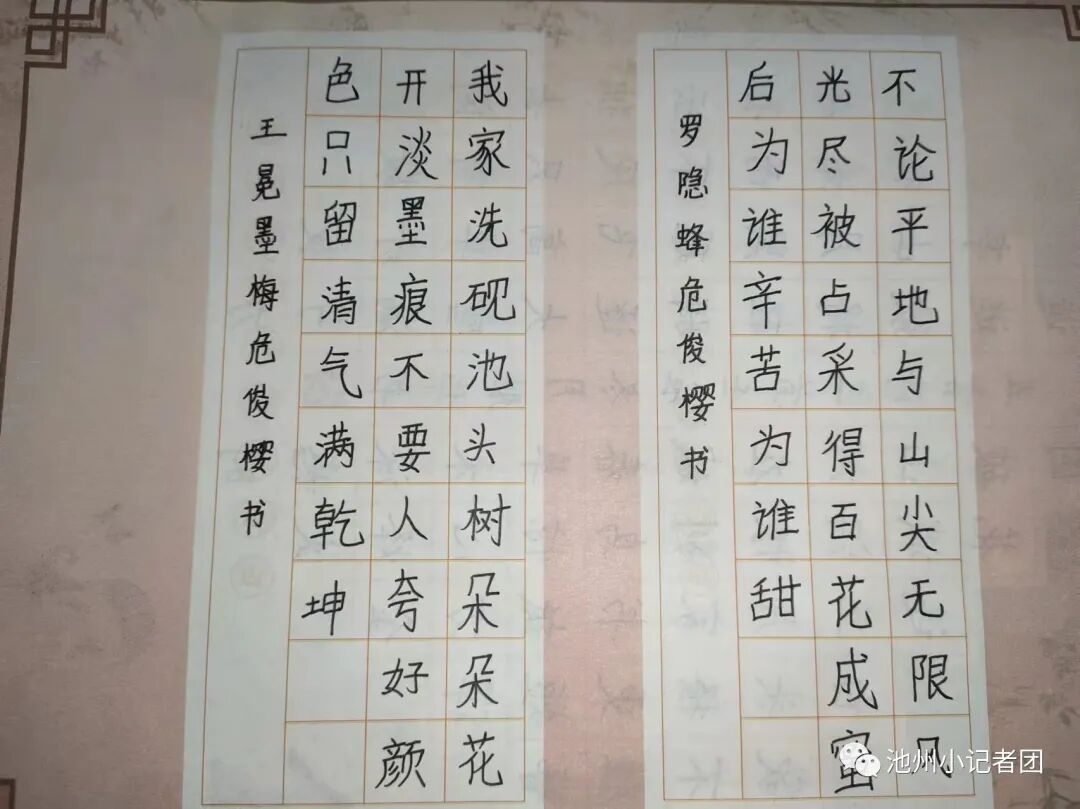 不论平地与山尖无限风
光尽被占采得百花成蜜
后为谁辛苦为谁甜
罗隐蜂危俊樱书
我家洗砚池头树朵朵花
开淡墨痕不要人夸好颜
色只留清气满乾坤
王冕墨梅危俊樱书
池州小记者团